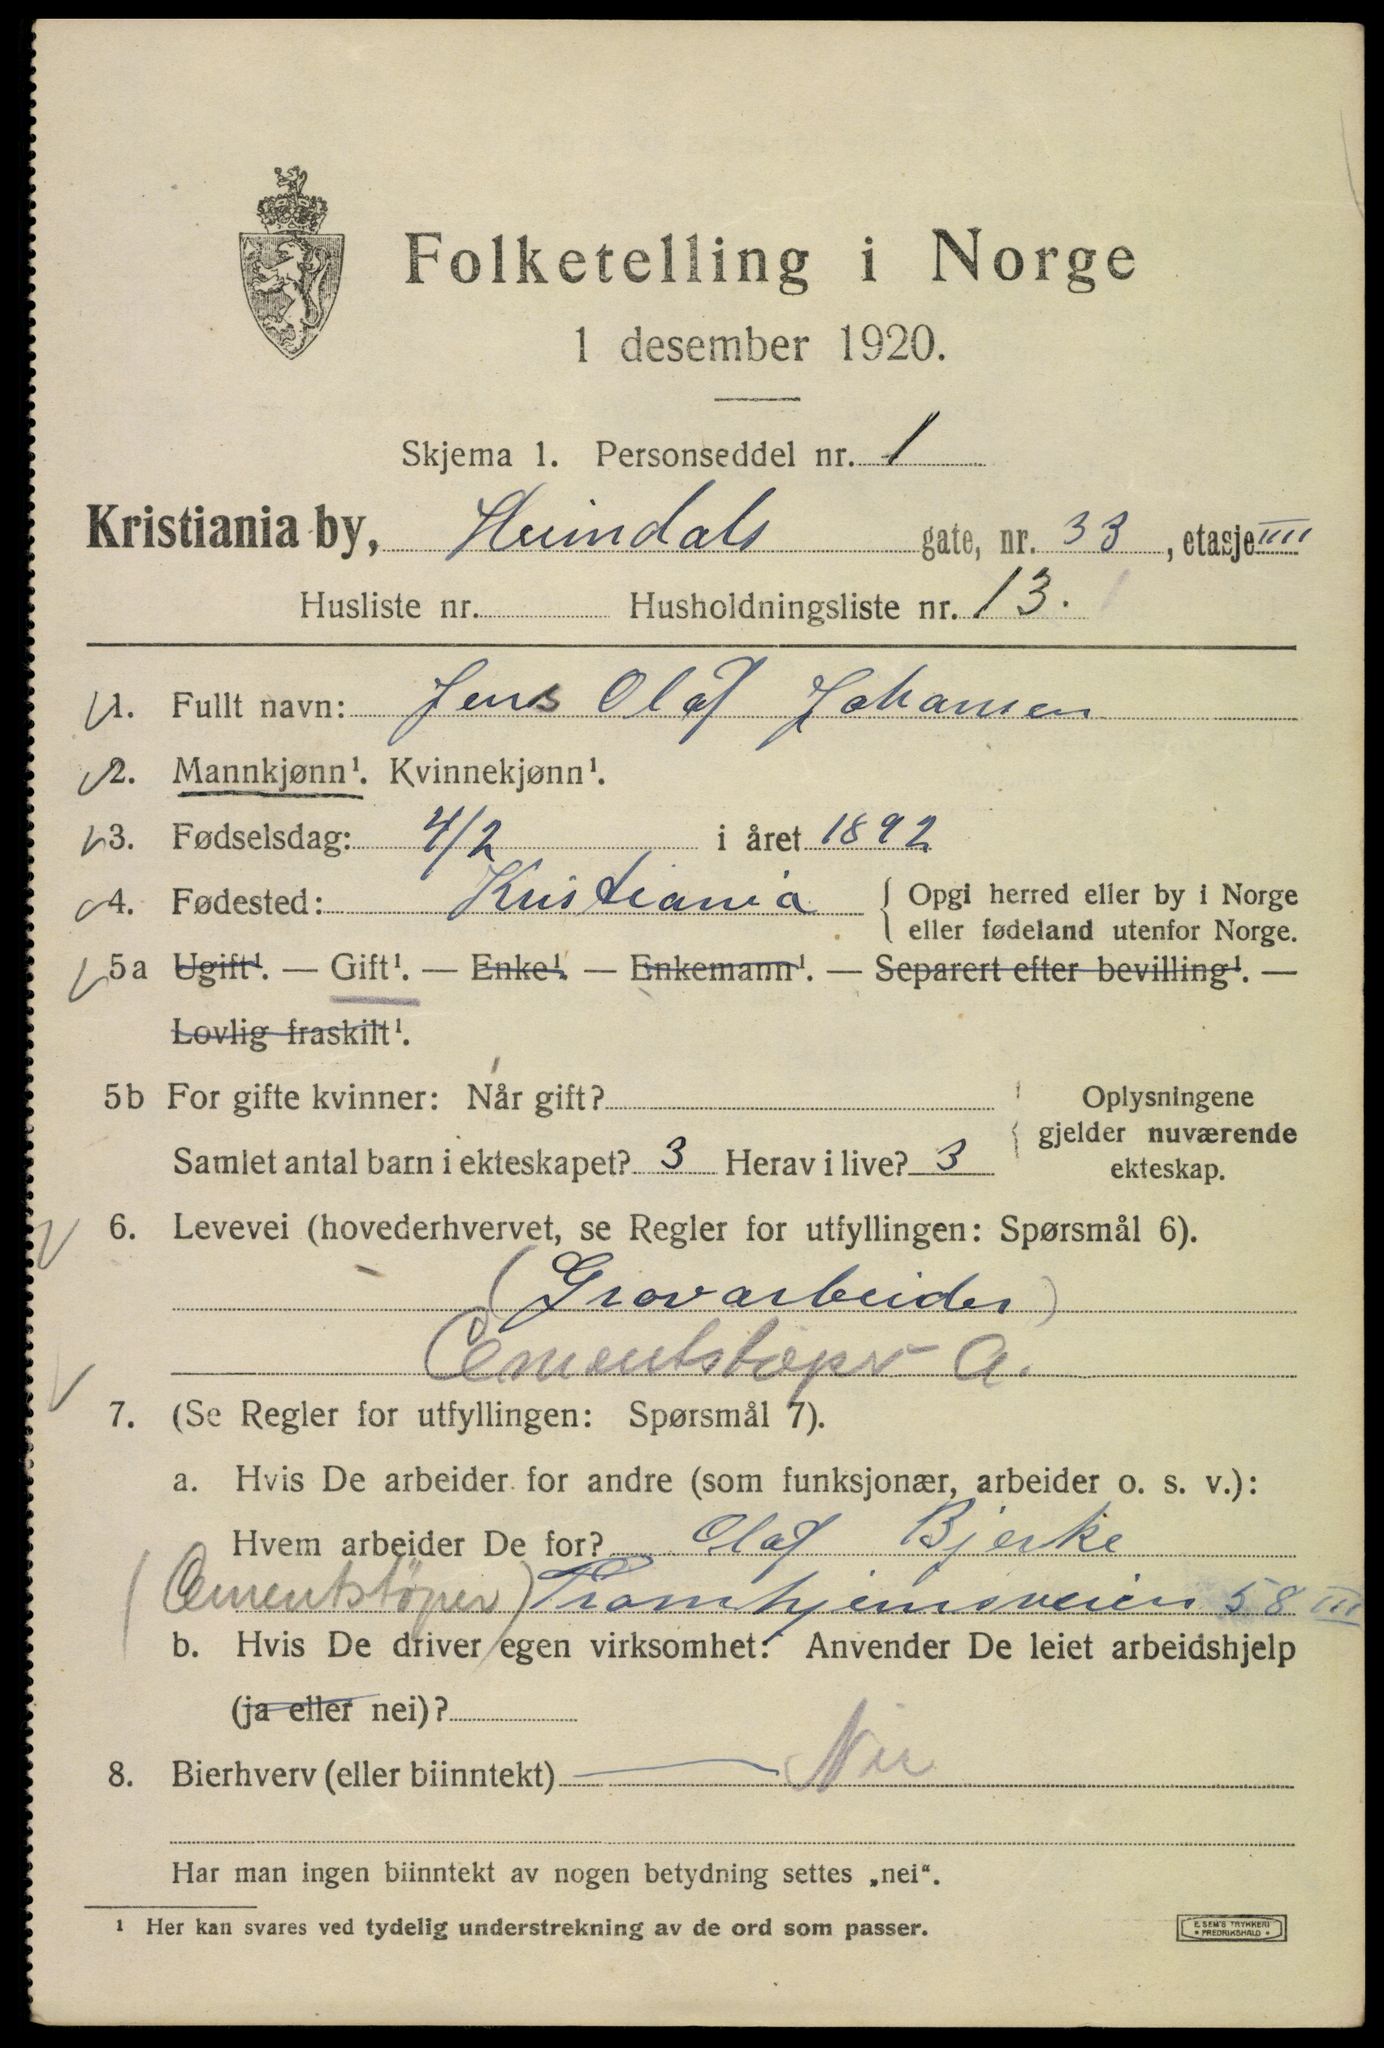 Folketelling i Norge
1 desember 1920.
Skjema 1. Personseddel nr. 1
Kristiania by, Heimdals gate, nr. 33, etasje IIII
Husliste nr. Husholdningsliste nr. 13.
1. Fullt navn: Jens Olaf Johansen
2. Mannkjønn¹. Kvinnekjønn¹.
3. Fødselsdag: 4/2 i året 1892
4. Fødested: Kristiania { Opgi herred eller by i Norge
eller fødeland utenfor Norge.
5a Ugift¹. — Gift¹. — Enke¹. — Enkemann¹. — Separert efter bevilling¹. —
Lovlig fraskilt¹.
5b For gifte kvinner: Når gift? Oplysningene
gjelder nuværende
Samlet antal barn i ekteskapet? 3 Herav i live? 3 ekteskap.
6. Levevei (hovederhvervet, se Regler for utfyllingen: Spørsmål 6).
(Grovarbeider)
Cementstøper A.
7. (Se Regler for utfyllingen: Spørsmål 7).
a. Hvis De arbeider for andre (som funksjonær, arbeider o. s. v.):
Hvem arbeider De for? Olaf Bjerke
(Cementstøper) Tromhjemsveien 58 III
b. Hvis De driver egen virksomhet: Anvender De leiet arbeidshjelp
(ja eller nei)?
8. Bierhverv (eller biinntekt) Nei
Har man ingen biinntekt av nogen betydning settes „nei“.
¹ Her kan svares ved tydelig understrekning av de ord som passer.
E. SEM'S TRYKKERI
FREDRIKSHALD